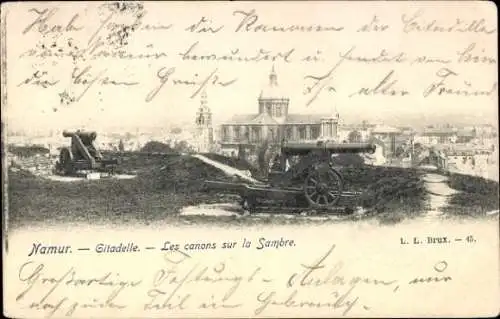 Habe auch die Kanonen der Citadelle
bewundert u. sendet
die besten Grüße alter Freund
Namur. — Citadelle. — Les canons sur la Sambre.
L. L. Brux. — 45.
Großartige Festungs- Anlagen, nur
noch zum Teil in Gebrauch.